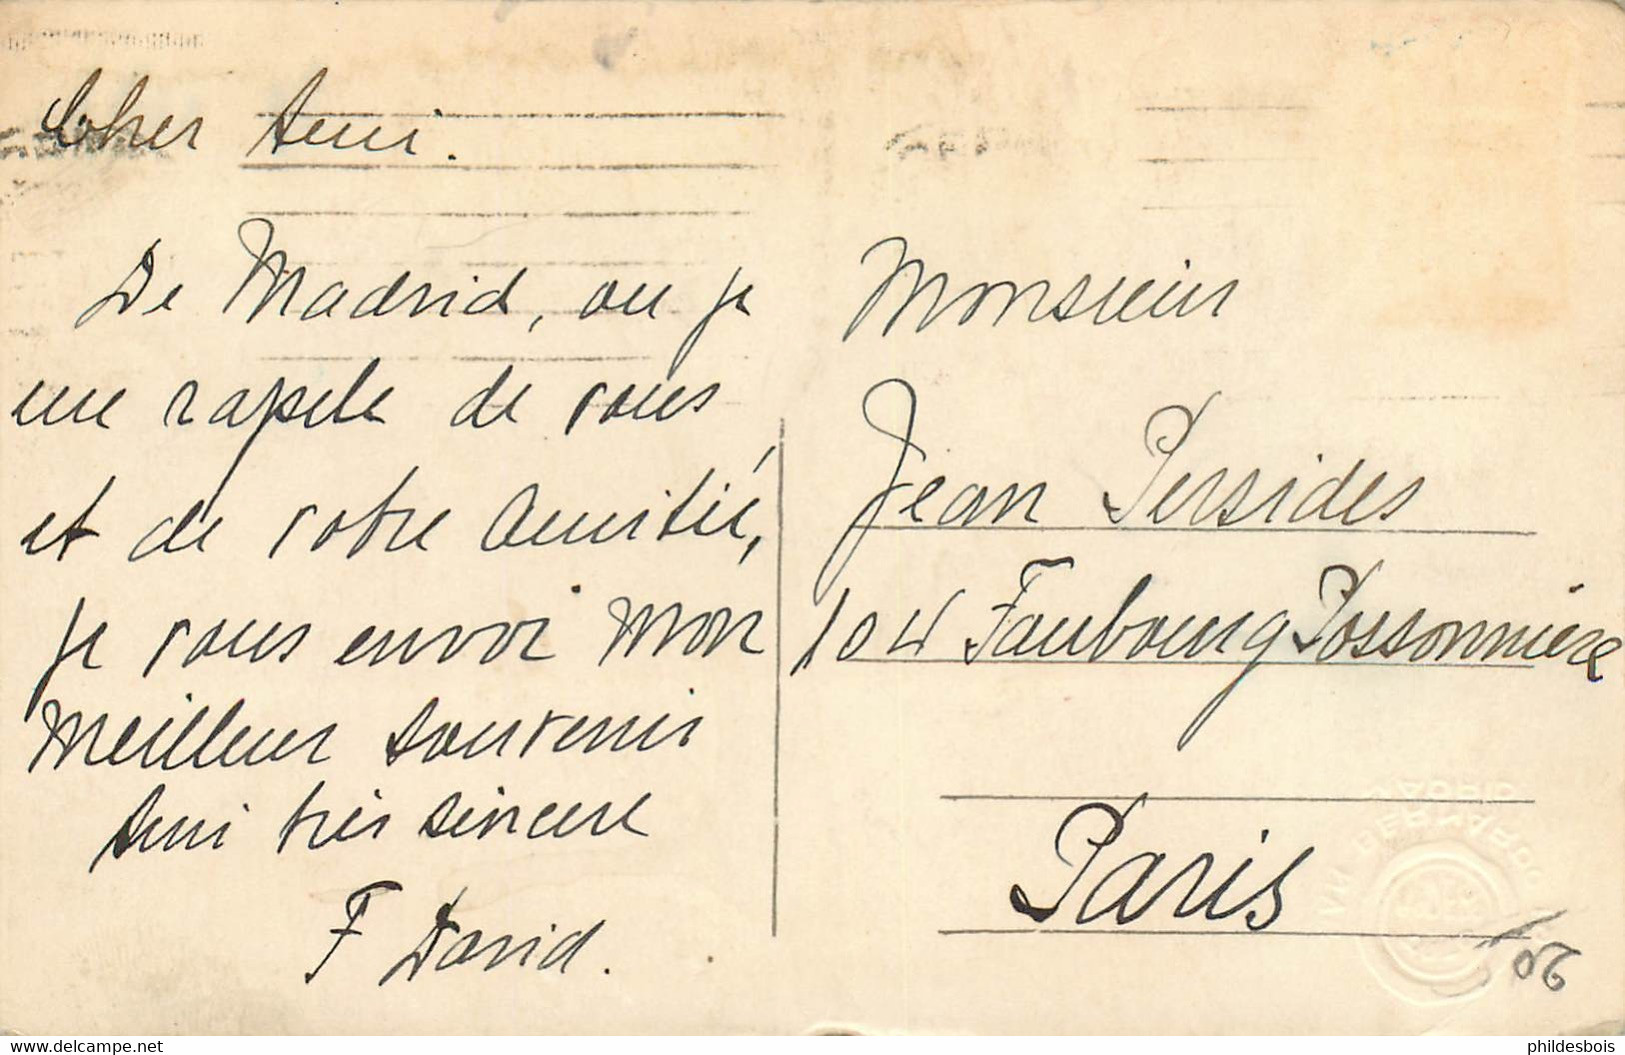 Cher Ami.
De Madrid, ou je
me rapele de vous
et de votre Amitié,
je vous envoi mon
meilleur souvenir
Ami très sincere
F David.
Monsieur
Jean Persides
104 Faubourg Possonniere
Paris
MADRID
20
www.delcampe.net
phildesbois